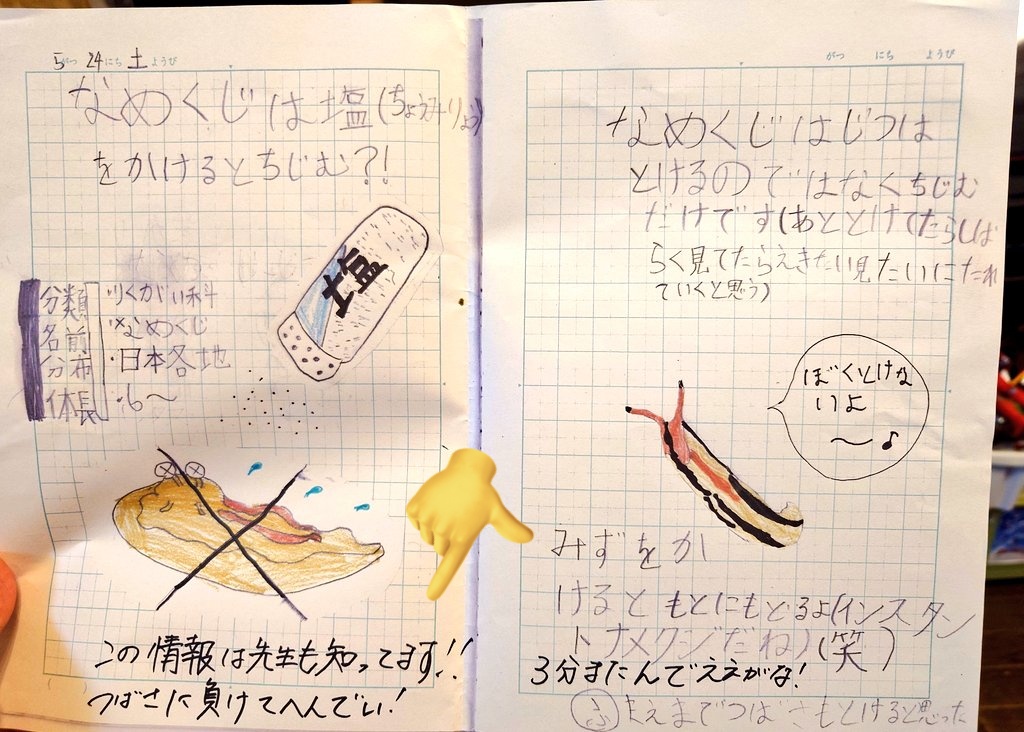 5がつ 24にち 土ようび
なめくじは塩(ちょうみりょう)
をかけるとちじむ?!
塩
分類 ・りくがい科
名前 ・なめくじ
分布 ・日本各地
体長 ・6〜
この情報は先生も知ってます!!
つばさに負けてへんでい!
がつ にち ようび
なめくじはじつは
とけるのではなくちじむ
だけです(あととけてたらしば
らく見てたらえきたい見たいにたれ
ていくと思う)
ぼくとけな
いよ
〜♪
みずをか
けるともとにもどるよ(インスタン
トナメクジだね)(笑)
3分またんでええがな!
まえまでつばさもとけると思った